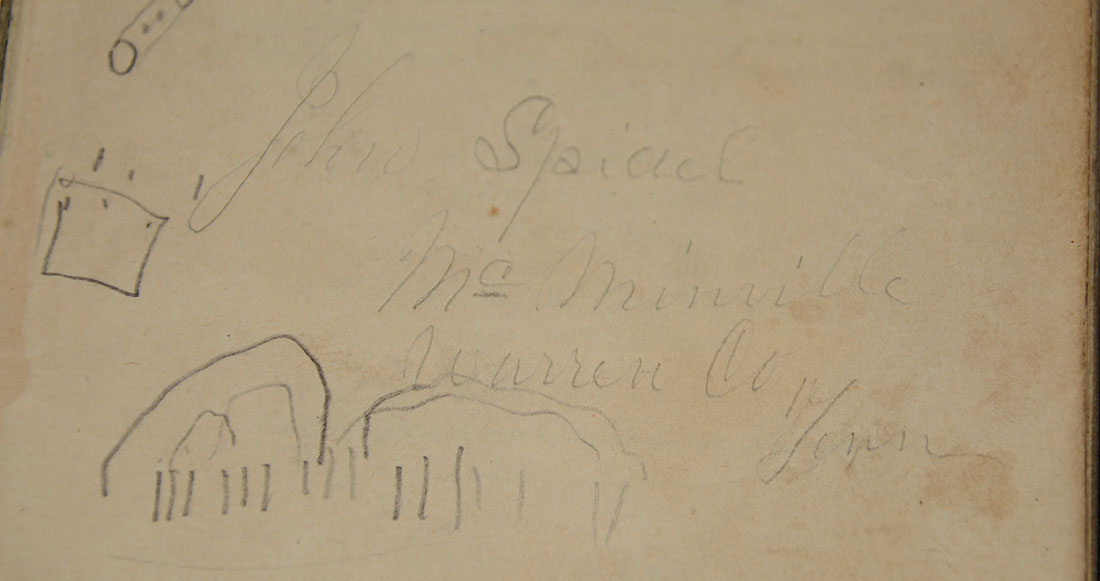 John Spidel
Mc Minville
Warren Co
Tenn